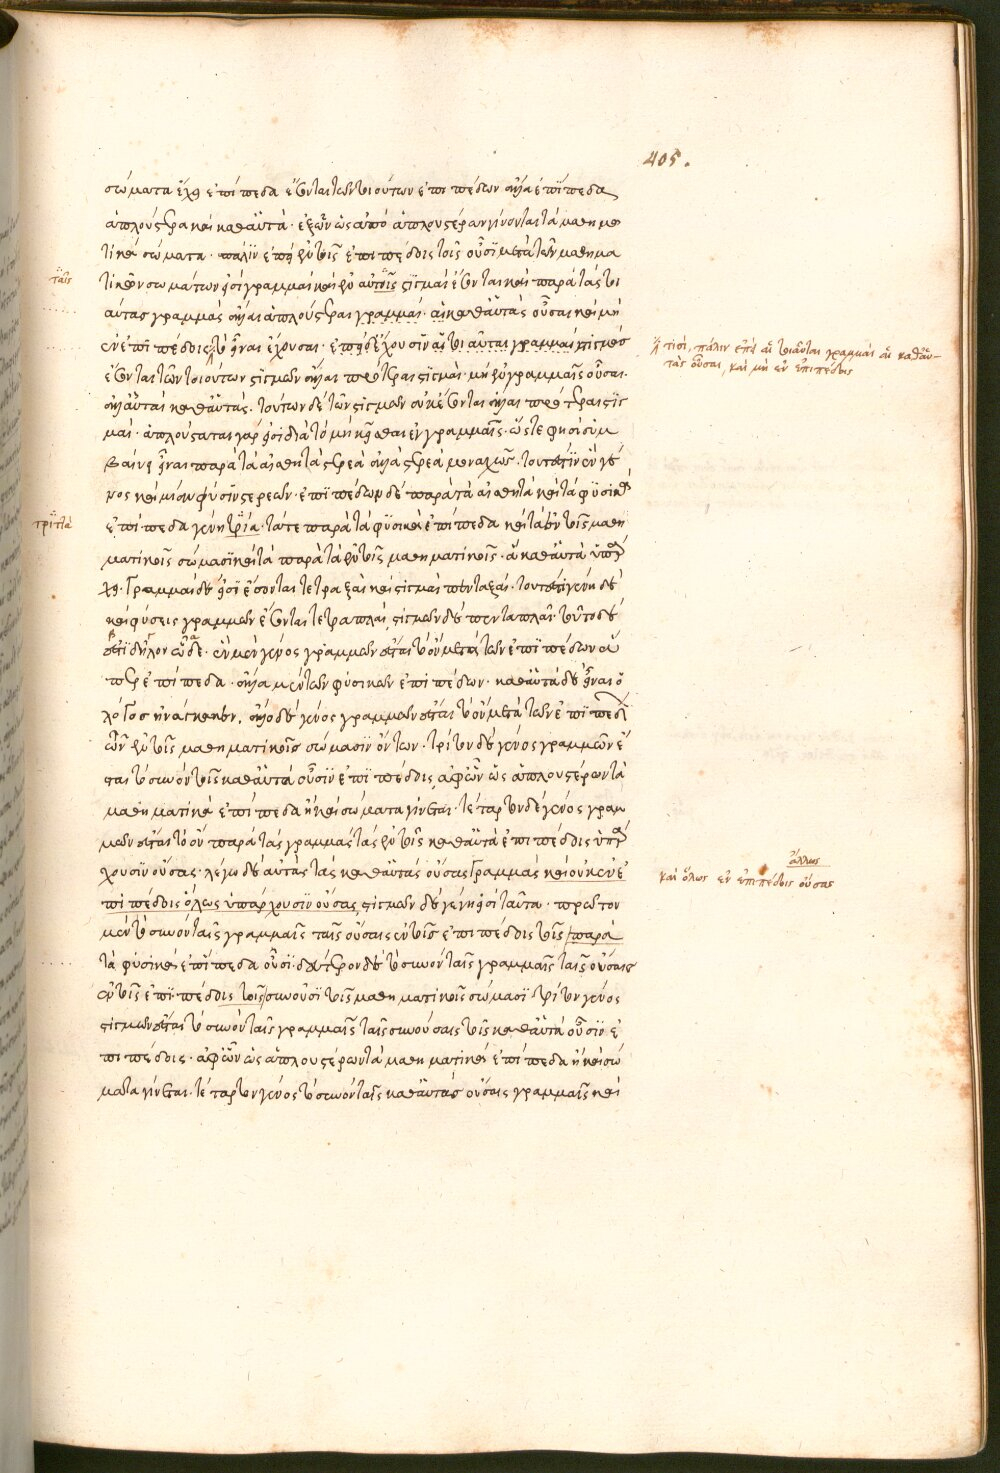 405.
σώματα ἔχει ἐπίπεδα ἔσονται τῶν τοιούτων ἐπιπέδων ἄλλα ἐπίπεδα
ἁπλούστερα καὶ καθ' αὑτά. ἐξ ὧν ὡς ἀπὸ ἁπλουστέρων γίνονται τὰ μαθημα
τικὰ σώματα. πάλιν ἐπεὶ ἐν τοῖς ἐπιπέδοις τοῖς οὖσι μετὰ τῶν μαθημα
τικῶν σωμάτων εἰσὶ γραμμαὶ καὶ ἐν αὐτοῖς στιγμαὶ ἔσονται καὶ παρὰ τὰς τοι
ταῖς
αύτας γραμμὰς ἄλλαι ἁπλούστεραι γραμμαί. αἱ καθ' αὑτὰς οὖσαι καὶ μὴ
ἐν ἐπιπέδοις τὸ εἶναι ἔχουσαι. ἐπεὶ δὲ ἔχουσιν αἱ τοιαῦται γραμμαὶ στιγμάς
τισὶ, πάλιν ἐπεὶ αἱ τοιαῦται γραμμαὶ αἱ καθ' αὑ-
τὰς οὖσαι, καὶ μὴ ἐν ἐπιπέδοις
ἔσονται τῶν τοιούτων στιγμῶν ἄλλαι πρότεραι στιγμαί. μὴ ἐν γραμμαῖς οὖσαι.
ἀλλ' αὐταὶ καθ' αὑτάς. τούτων δὲ τῶν στιγμῶν οὐκ ἔσονται ἄλλαι πρότεραι στιγ
μαί. ἁπλούσταται γάρ εἰσι διὰ τὸ μὴ κεῖσθαι ἐν γραμμαῖς. ὥστε φησὶ συμ
βαίνει εἶναι παρὰ τὰ αἰσθητὰ στερεὰ ἄλλα στερεὰ μοναχῶς. τουτέστιν ἓν γέ
νος καὶ μίαν φύσιν στερεῶν. ἐπιπέδων δὲ παρὰ τὰ αἰσθητὰ καὶ τὰ φυσικὰ
ἐπίπεδα γένη τρία. τά τε παρὰ τὰ φυσικὰ ἐπίπεδα καὶ τὰ ἐν τοῖς μαθη
τριττὰ
ματικοῖς σώμασι καὶ τὰ παρὰ τὰ ἐν τοῖς μαθηματικοῖς. ἃ καθ' αὑτὰ ὑπάρ
χει. Γραμμαὶ δέ εἰσι ἔσονται τετραξαὶ καὶ στιγμαὶ πενταξαί. τουτέστι γένη δὲ
καὶ φύσεις γραμμῶν ἔσονται τετραπλαῖ, στιγμῶν δὲ πενταπλαῖ. τοῦτο δὲ
ἐστὶ δῆλον ὧδε. ἓν μὲν γένος γραμμῶν ἔσται τὸ ὂν μετὰ τῶν ἐπιπέδων οὐ
ἐπίπεδα. ἀλλὰ μετὰ τῶν φυσικῶν ἐπιπέδων. καθ' αὑτὰ δὲ εἶναι ὁ
λόγος ἠνάγκασεν. ἄλλο δὲ γένος γραμμῶν ἔσται τὸ ὂν μετὰ τῶν ἐπιπέδων
τῶν ἐν τοῖς μαθηματικοῖς σώμασιν ὄντων. τρίτον δὲ γένος γραμμῶν ἔ
σται τὸ συνὸν τοῖς καθ' αὑτὰ οὖσιν ἐπιπέδοις, ἀφ' ὧν ὡς ἁπλουστέρων τὰ
μαθηματικὰ ἐπίπεδα ἢ καὶ σώματα γίνεται. τέταρτον δὲ γένος γραμ
μῶν ἔσται τὸ ὂν παρὰ τὰς γραμμὰς τὰς ἐν τοῖς καθ' αὑτὰ ἐπιπέδοις ὑπάρ
χουσιν οὔσας. λέγω δὲ αὐτὰς τὰς καθ' αὑτὰς οὔσας γραμμὰς καὶ οὐκ ἐν ἐ
ἄλλως
καὶ ὅλως ἐν ἐπιπέδοις οὔσας
πιπέδοις ὅλως ὑπάρχουσιν οὔσας, στιγμῶν δὲ γένη εἰσὶ ταῦτα. πρῶτον
μὲν τὸ συνὸν ταῖς γραμμαῖς ταῖς οὔσαις ἐν τοῖς ἐπιπέδοις τοῖς παρὰ
τὰ φυσικὰ ἐπίπεδα οὖσι. δεύτερον δὲ τὸ συνὸν ταῖς γραμμαῖς ταῖς οὔσαις
ἐν τοῖς ἐπιπέδοις τοῖς συνοῦσι τοῖς μαθηματικοῖς σώμασι τρίτον γένος
στιγμῶν ἔσται τὸ συνὸν ταῖς γραμμαῖς ταῖς συνούσαις τοῖς καθ' αὑτὰ οὖσιν ἐ
πιπέδοις. ἀφ' ὧν ὡς ἁπλουστέρων τὰ μαθηματικὰ ἐπίπεδα ἢ καὶ σώ
ματα γίνεται. τέταρτον γένος τὸ συνὸν ταῖς καθ' αὑτὰς οὔσαις γραμμαῖς καὶ